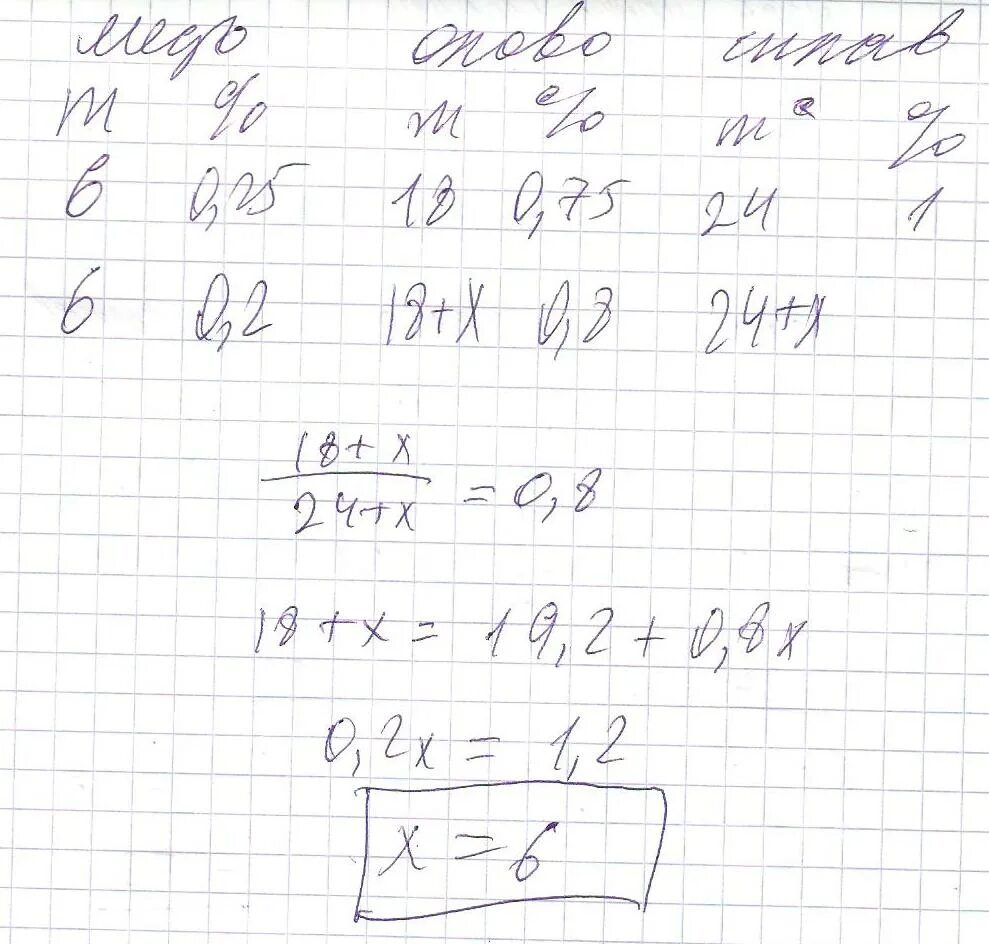 медь олово сплав
m % m % m %
6 0,25 18 0,75 24 1
6 0,2 18+x 0,8 24+x
18+x
24+x
= 0,8
18+x = 19,2+0,8x
0,2x = 1,2
x = 6